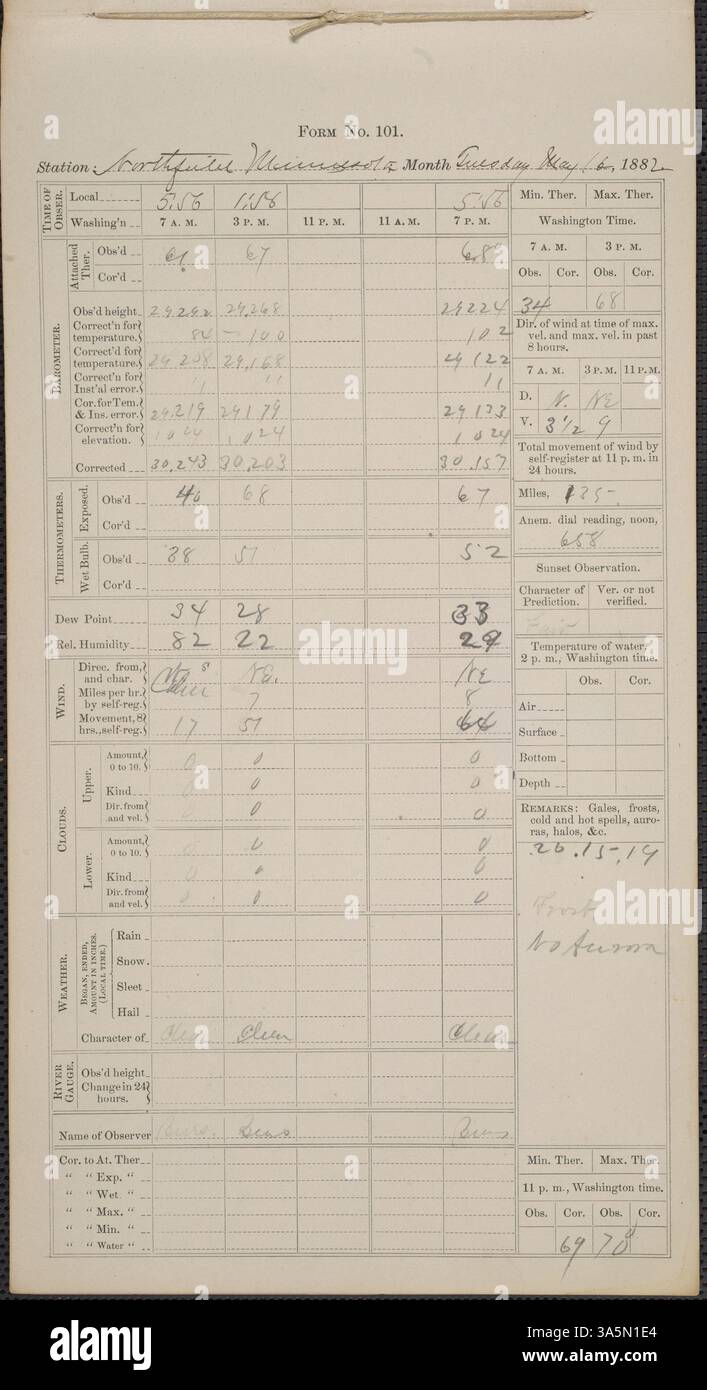 FORM NO. 101.
Station: Northfield Minnesota Month Tuesday May 16, 1882
TIME OF OBSER. Local 5:56 1:56 5:56
Washing'n 7 A. M. 3 P. M. 11 P. M. 11 A. M. 7 P. M.
BAROMETER.
Attached Ther. Obs'd 61 67 68
Cor'd
Obs'd height 29.292 29.268 29224
Correct'n for temperature. 84 — 100 102
Correct'd for temperature. 29 208 29,168 29 122
Correct'n for Inst'al error. 11 11 11
Cor. for Tem. & Ins. error. 29.219 29179 29133
Correct'n for elevation. 1024 1024 1024
Corrected 30.243 30.203 30.157
THERMOMETERS.
Exposed. Obs'd 40 68 67
Cor'd
Wet Bulb. Obs'd 38 51 52
Cor'd
Dew Point 34 28 33
Rel. Humidity 82 22 29
WIND.
Direc. from, and char. NE. NE
Miles per hr. by self-reg. 7 8
Movement, 8 hrs., self-reg. 17 51 64
CLOUDS.
Upper. Amount, 0 to 10. 0 0 0
Kind 0 0 0
Dir. from and vel. 0 0 0
Lower. Amount, 0 to 10. 0 0
Kind 0 0 0
Dir. from and vel. 0 0 0
WEATHER.
BEGAN, ENDED, AMOUNT IN INCHES. (LOCAL TIME.)
Rain
Snow
Sleet
Hail
Character of Clear Clear Clear
RIVER GAUGE.
Obs'd height
Change in 24 hours.
Name of Observer
Cor. to At. Ther
" " Exp. "
" " Wet "
" " Max. "
" " Min. "
" " Water "
Min. Ther. Max. Ther.
Washington Time.
7 A. M. 3 P. M.
Obs. Cor. Obs. Cor.
34 68
Dir. of wind at time of max. vel. and max. vel. in past 8 hours.
7 A. M. 3 P.M. 11 P.M.
D. N. NE
V. 3 1/2 9
Total movement of wind by self-register at 11 p. m. in 24 hours.
Miles, 135
Anem. dial reading, noon,
658
Sunset Observation.
Character of Prediction. Ver. or not verified.
Fair
Temperature of water, 2 p. m., Washington time.
Obs. Cor.
Air
Surface
Bottom
Depth
REMARKS: Gales, frosts, cold and hot spells, auroras, halos, &c.
26.15.14
Frost
No Aurora
Min. Ther. Max. Ther.
11 p. m., Washington time.
Obs. Cor. Obs. Cor.
69 70
alamy
Image ID: 3A5N1E4
www.alamy.com